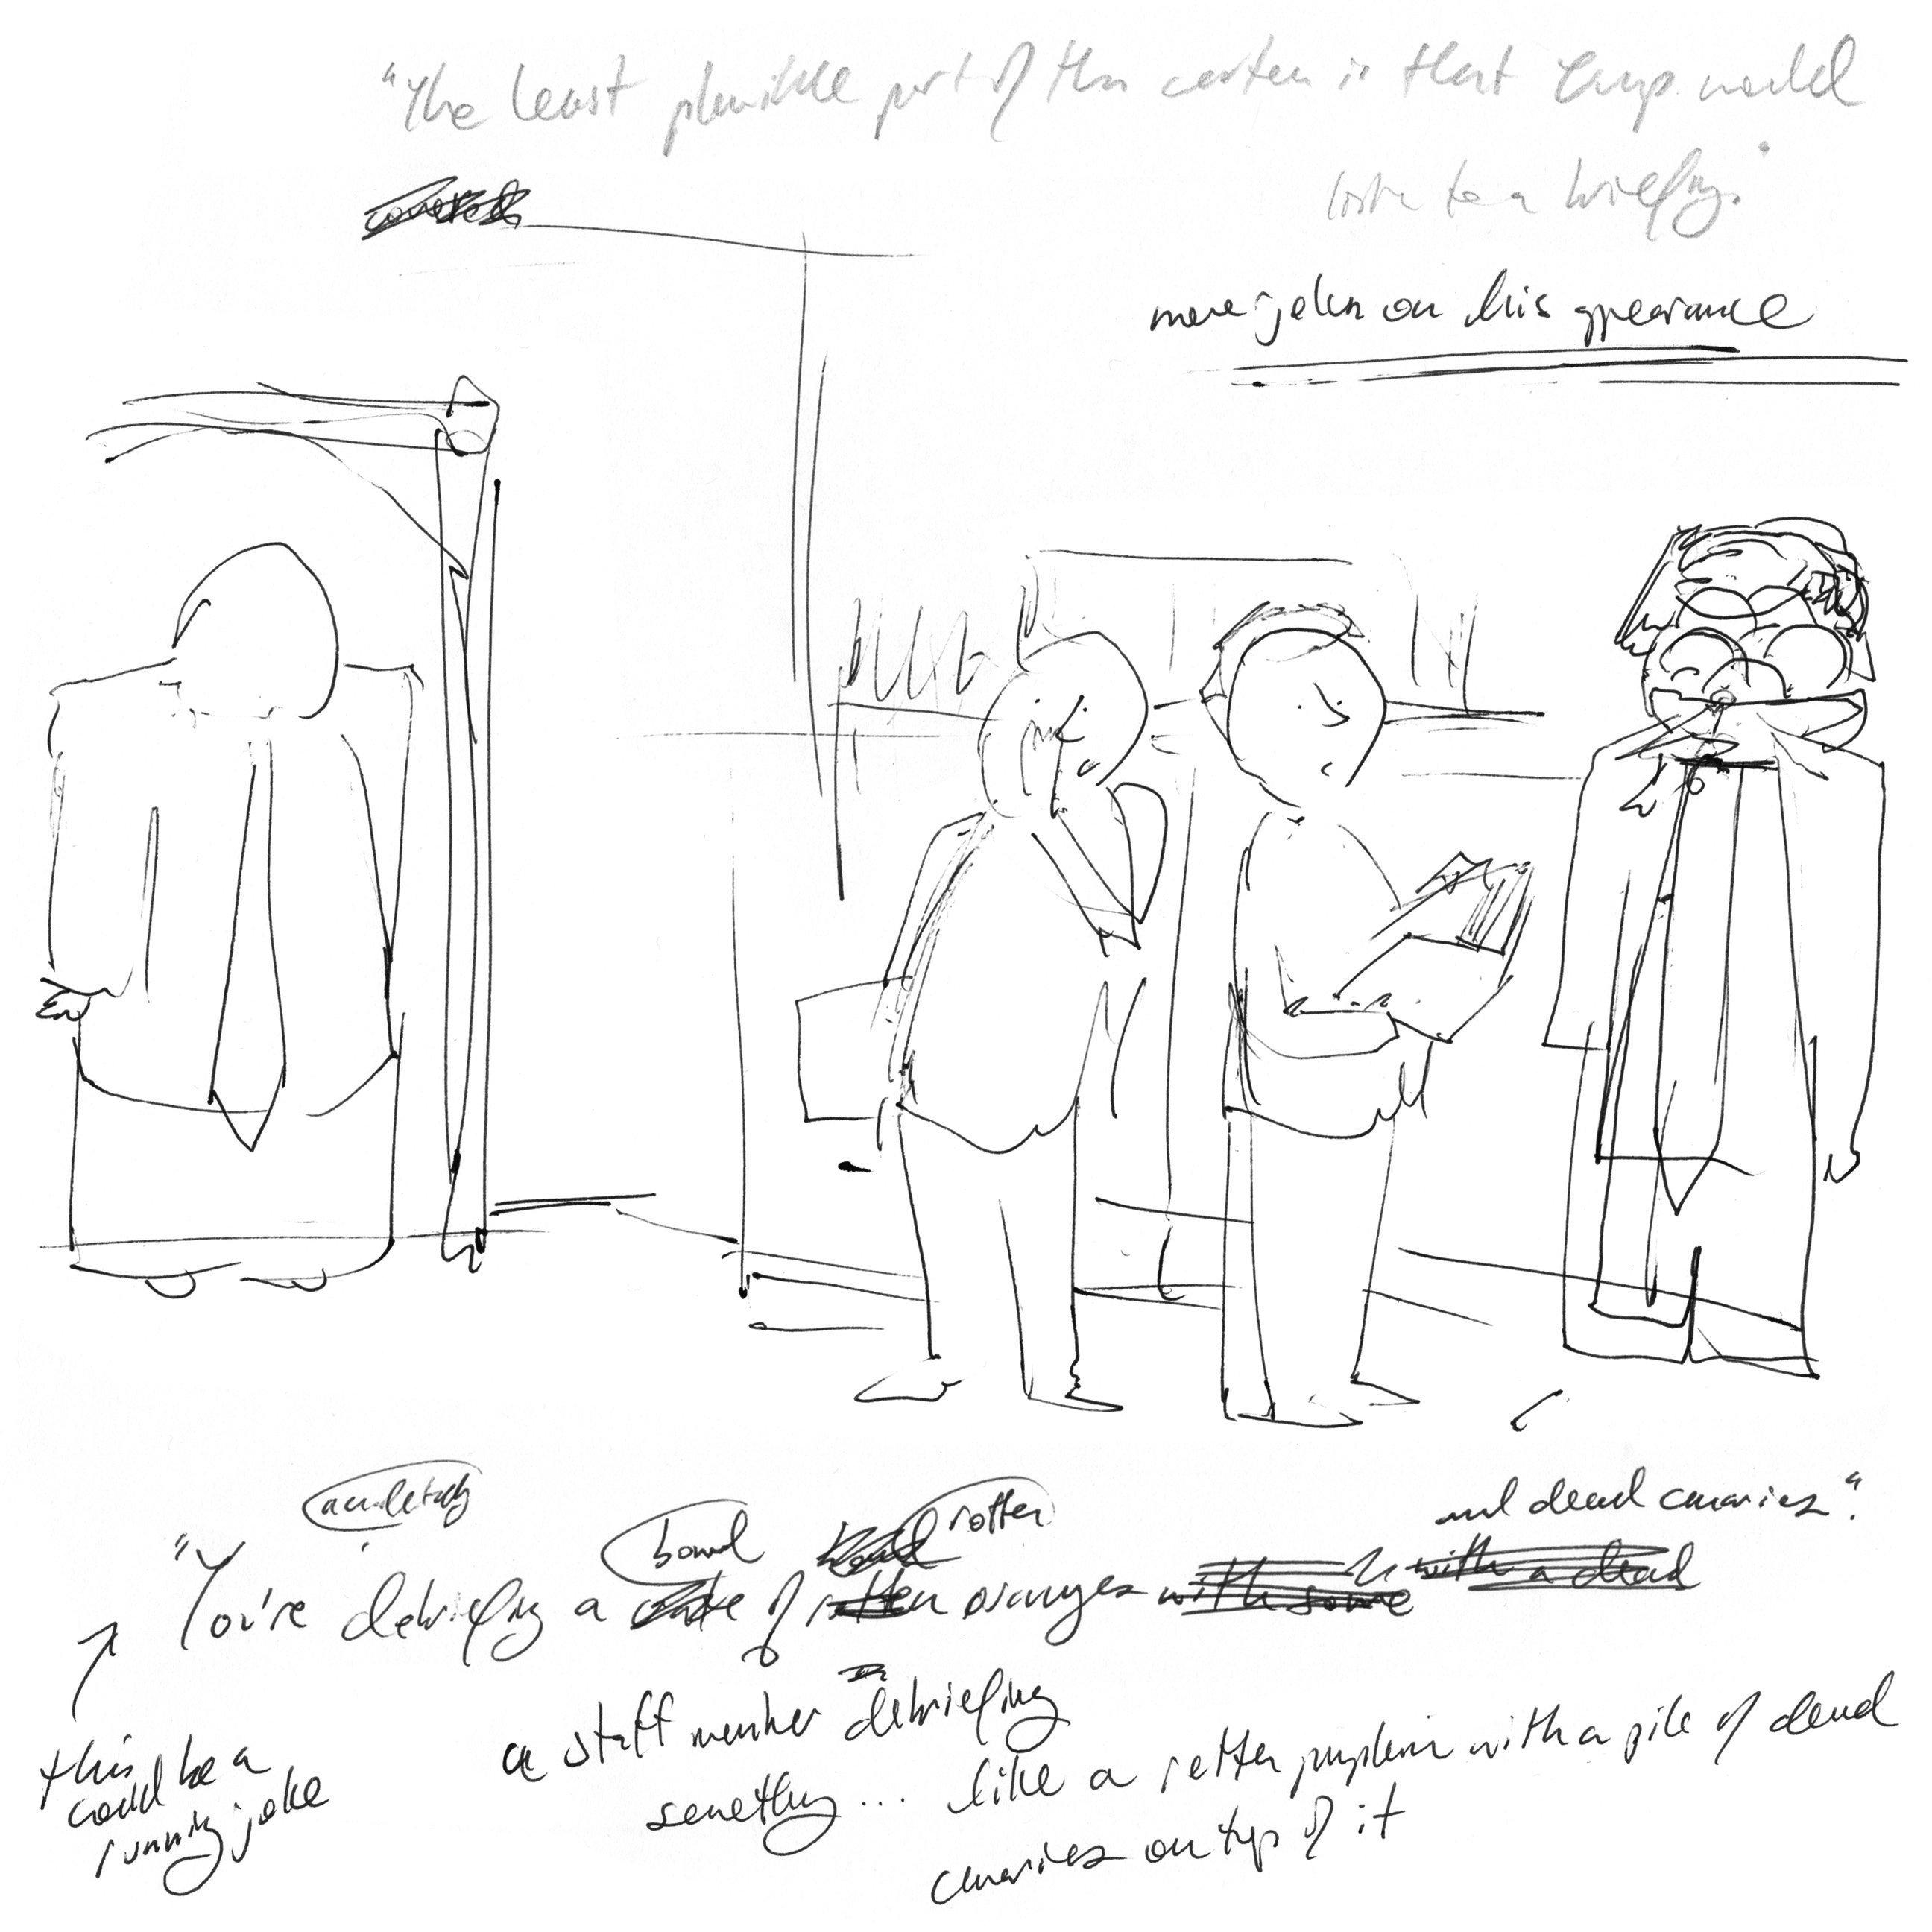 "The least plausible part of this cartoon is that Trump would
listen to a briefing."
more jokes on his appearance
accidentally
bowl rotten and dead canaries".
"You're debriefing a of rotten oranges with some with a dead
a staff member debriefing
something... like a rotten pumpkin with a pile of dead
canaries on top of it
this
could be a
running joke